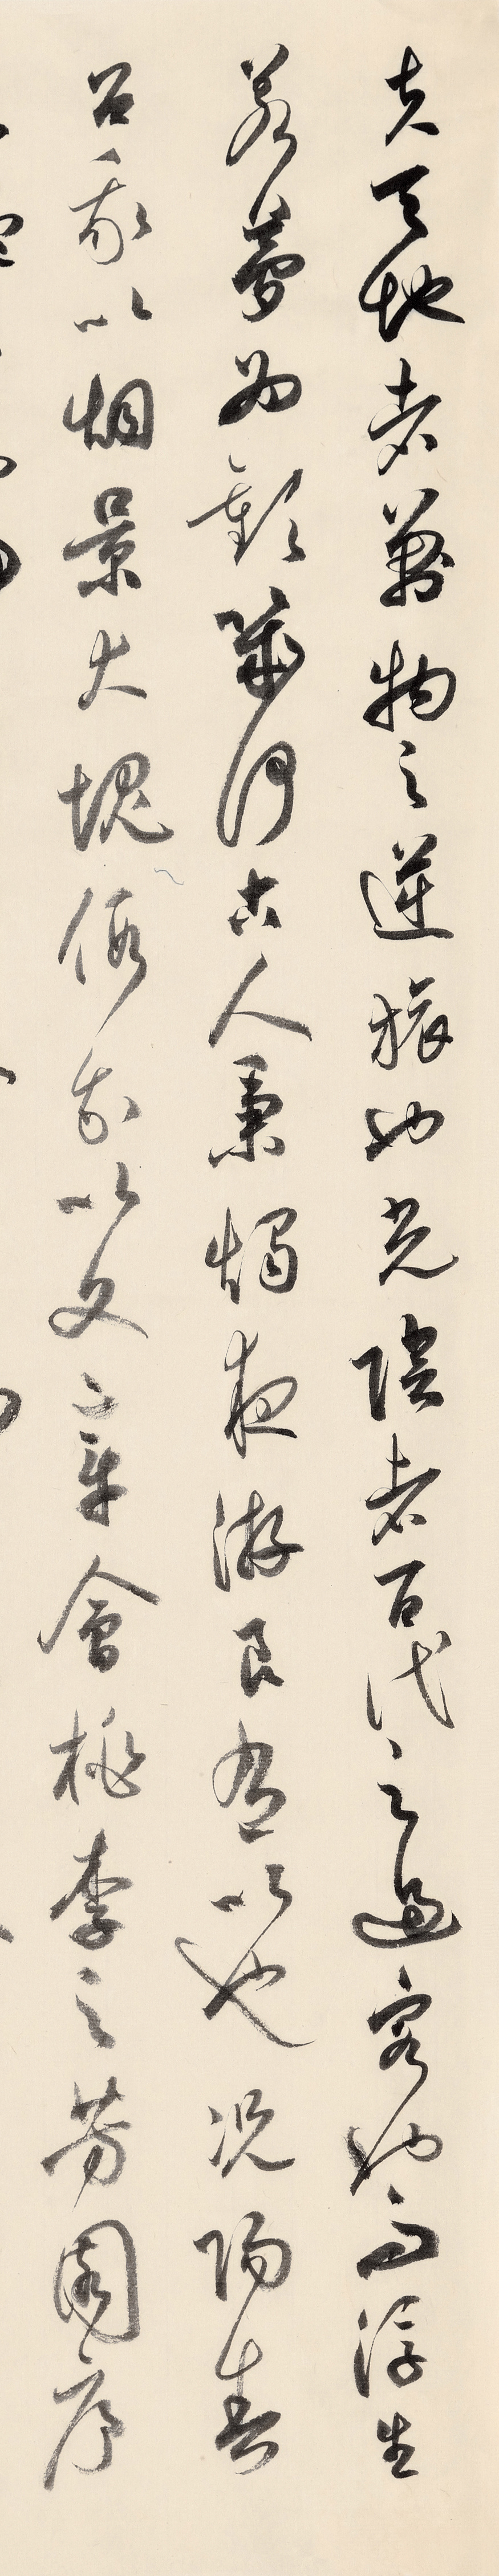 夫天地者萬物之逆旅也光陰者百代之過客也而浮生
若夢為歡幾何古人秉燭夜游良有以也況陽春
召我以烟景大塊假我以文章會桃李之芳園序